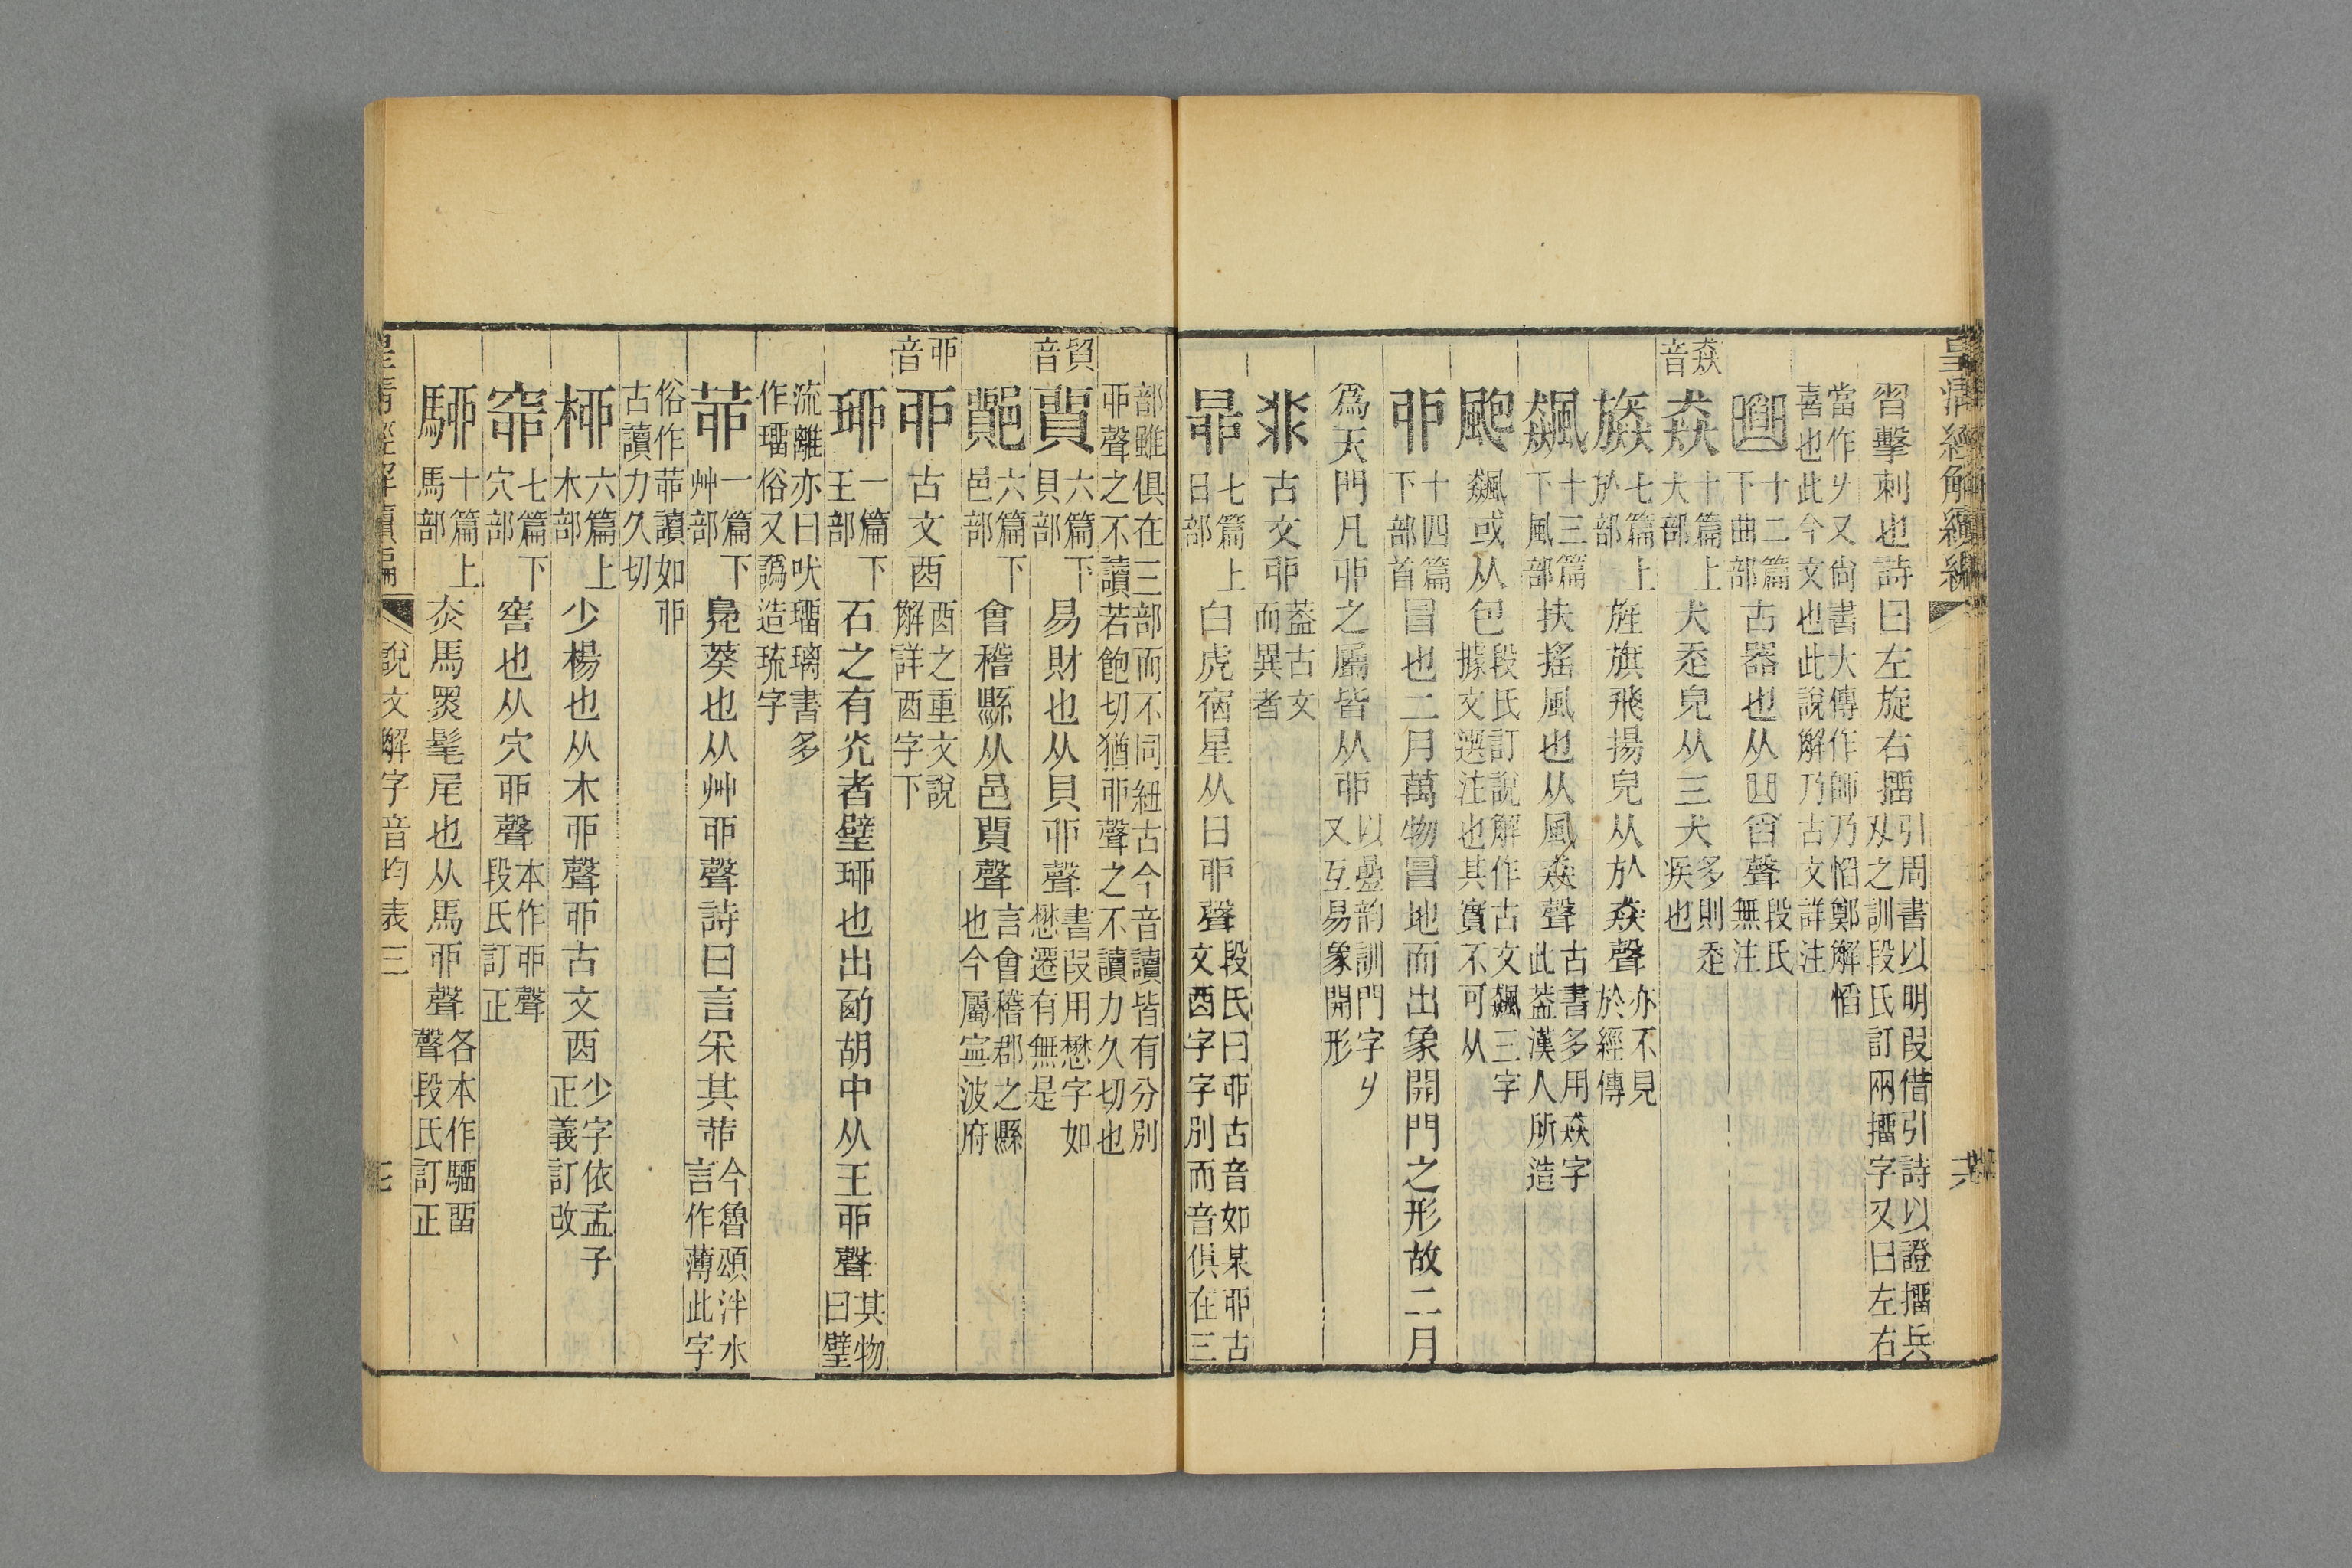 皇清經解續編
習擊刺也詩曰左旋右搯引周書以明叚借引詩以證搯兵
㕚之訓段氏訂兩搯字又曰左右
當作又尙書大傳作師乃慆鄭解慆
喜也此今文也此說解乃古文詳注
十二篇下曲部古器也从曲舀聲段氏無注
猋音
猋十篇上犬部犬走皃从三犬多則走疾也
旚七篇上㫃部旌旗飛揚皃从㫃猋聲亦不見於經傳
飆十三篇下風部扶搖風也从風猋聲古書多用猋字此葢漢人所造
颮飆或从包段氏訂說解作古文飆三字據文選注也其實不可从
丣十四篇下部首冒也二月萬物冒地而出象開門之形故二月
爲天門凡丣之屬皆从丣以疊韵訓門字又互易象開形
古文丣葢古文而異者
昴七篇上日部白虎宿星从日丣聲段氏曰丣古音如某丣古文酉字字別而音俱在三
部雖俱在三部而不同紐古今音讀皆有分別
丣聲之不讀若飽切猶丣聲之不讀力久切也
貿音
貿六篇下貝部易財也从貝丣聲書叚用懋字如懋遷有無是
鄮六篇下邑部會稽縣从邑貿聲言會稽郡之縣也今屬寧波府
丣音
丣古文酉酉之重文說解詳酉字下
珋一篇下王部石之有光者璧珋也出西胡中从王丣聲其物曰璧
流離亦曰吠瑠璃書多
作瑠俗又譌造琉字
茆一篇下艸部鳧葵也从艸丣聲詩曰言采其茆今魯頌泮水言作薄此字
俗作茆讀如丣
古讀力久切
桺六篇上木部少楊也从木丣聲丣古文酉少字依孟子正義訂改
窌七篇下穴部窖也从穴丣聲本作丣聲段氏訂正
駵十篇上馬部赤馬黑髦尾也从馬丣聲各本作騮畱聲段氏訂正
皇清經解續編
說文解字音均表三